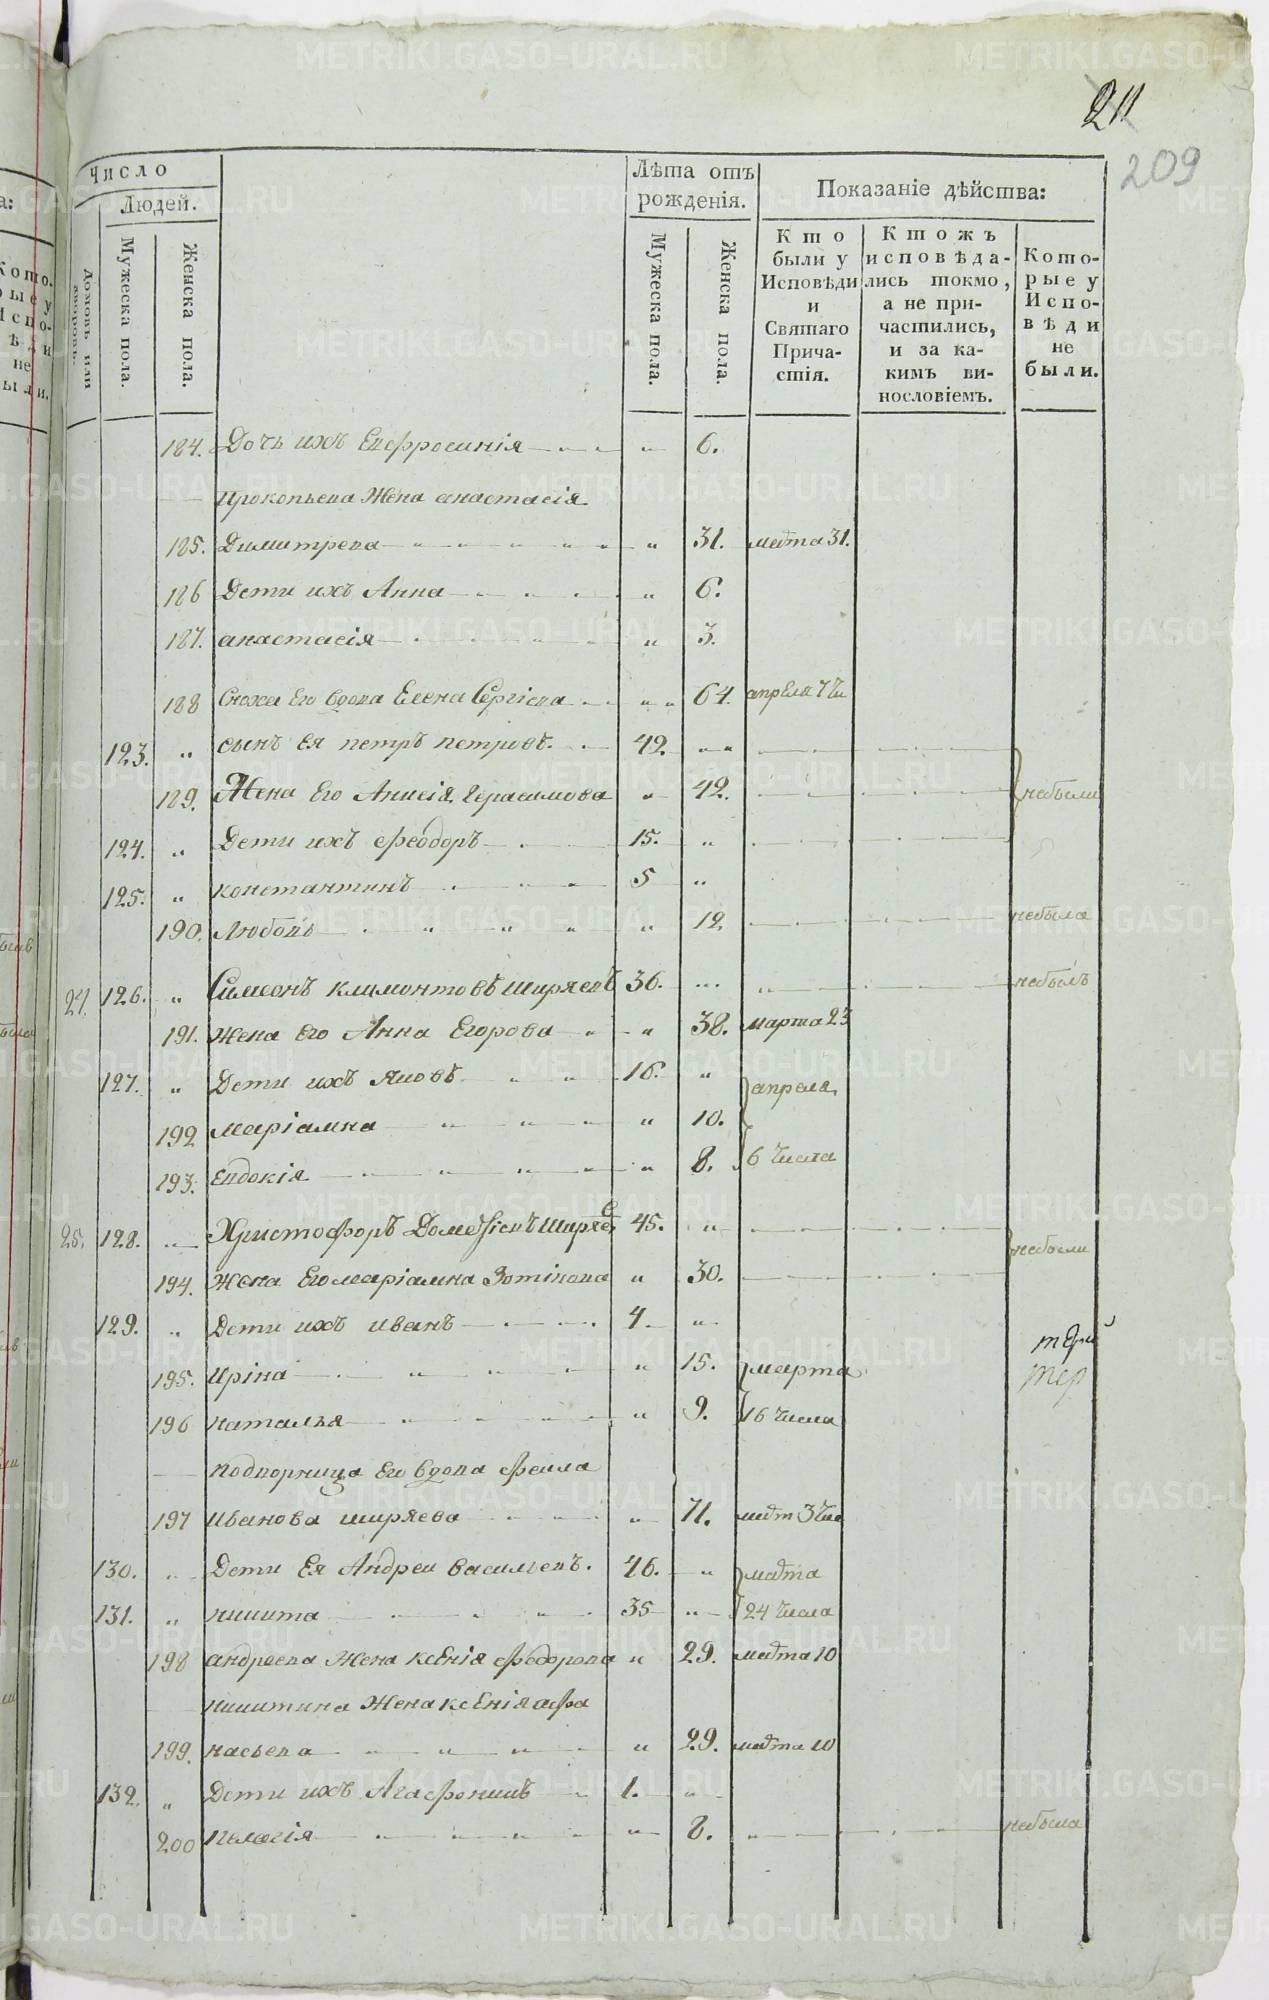 211
209
Число
Людей.
Домовъ или дворовъ.
Мужеска пола.
Женска пола.
Лѣта отъ рожденія.
Мужеска пола.
Женска пола.
Показаніе дѣйства:
Кто были у Исповѣди и Святаго Прича-стія.
Ктожъ исповѣда-лись токмо, а не при-частились, и за ка-кимъ ви-нословіемъ.
Кото-рые у Испо-вѣди не были.
184. Дочь ихъ Евфросинія 6.
Прокопьева Жена анастасія
185. Димитрева 31. марта 31.
186 Дети ихъ Анна 6.
187. анастасія 3.
188 Сноха Его вдова Елена Сергіева 64. апреля 7 чи
123. сынъ Ея петръ петровъ 42.
189. Жена Его Анисія Герасимова 42. небыли
124. Дети ихъ Феодоръ 15.
125. константинъ 5
190. Любовь 12 небыла
24. 126. Симеонъ климонтовъ Ширяевъ 36. небылъ
191. Жена Его Анна Егорова 38. марта 23
127. Дети ихъ Яковъ 16. апреля
192 маріамна 10.
193. Евдокія 8. 6 числа
25. 128. Христофоръ Дометіевъ Ширяев 45. небыли
194. Жена Его маріамна Зотікова 30.
129. Дети ихъ иванъ 4.
195. Иріна 15. марта
196 наталья 9. 16 числа
подворница Его вдова Фекла
197 Иванова ширяева 71. март 3 чис
130. Дети Ея Андреи васильевъ. 46. марта
131. никита 35 24 числа
198 андреева Жена ксенія Федорова 29. марта 10
никитина Жена ксенія афа
199. насьева 29. марта 10
132. Дети ихъ Агафоникъ 1.
200 Пелагія 8. небыла